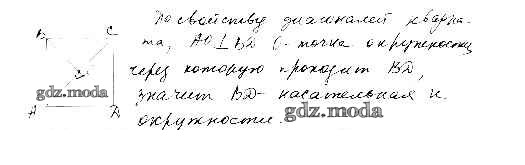 B
C
По свойству диагоналей квадра-
та, AO ⊥ BD O - точка окружности
через которую проходит BD,
значит BD - касательная к
окружности.
A
D
gdz.moda
gdz.moda